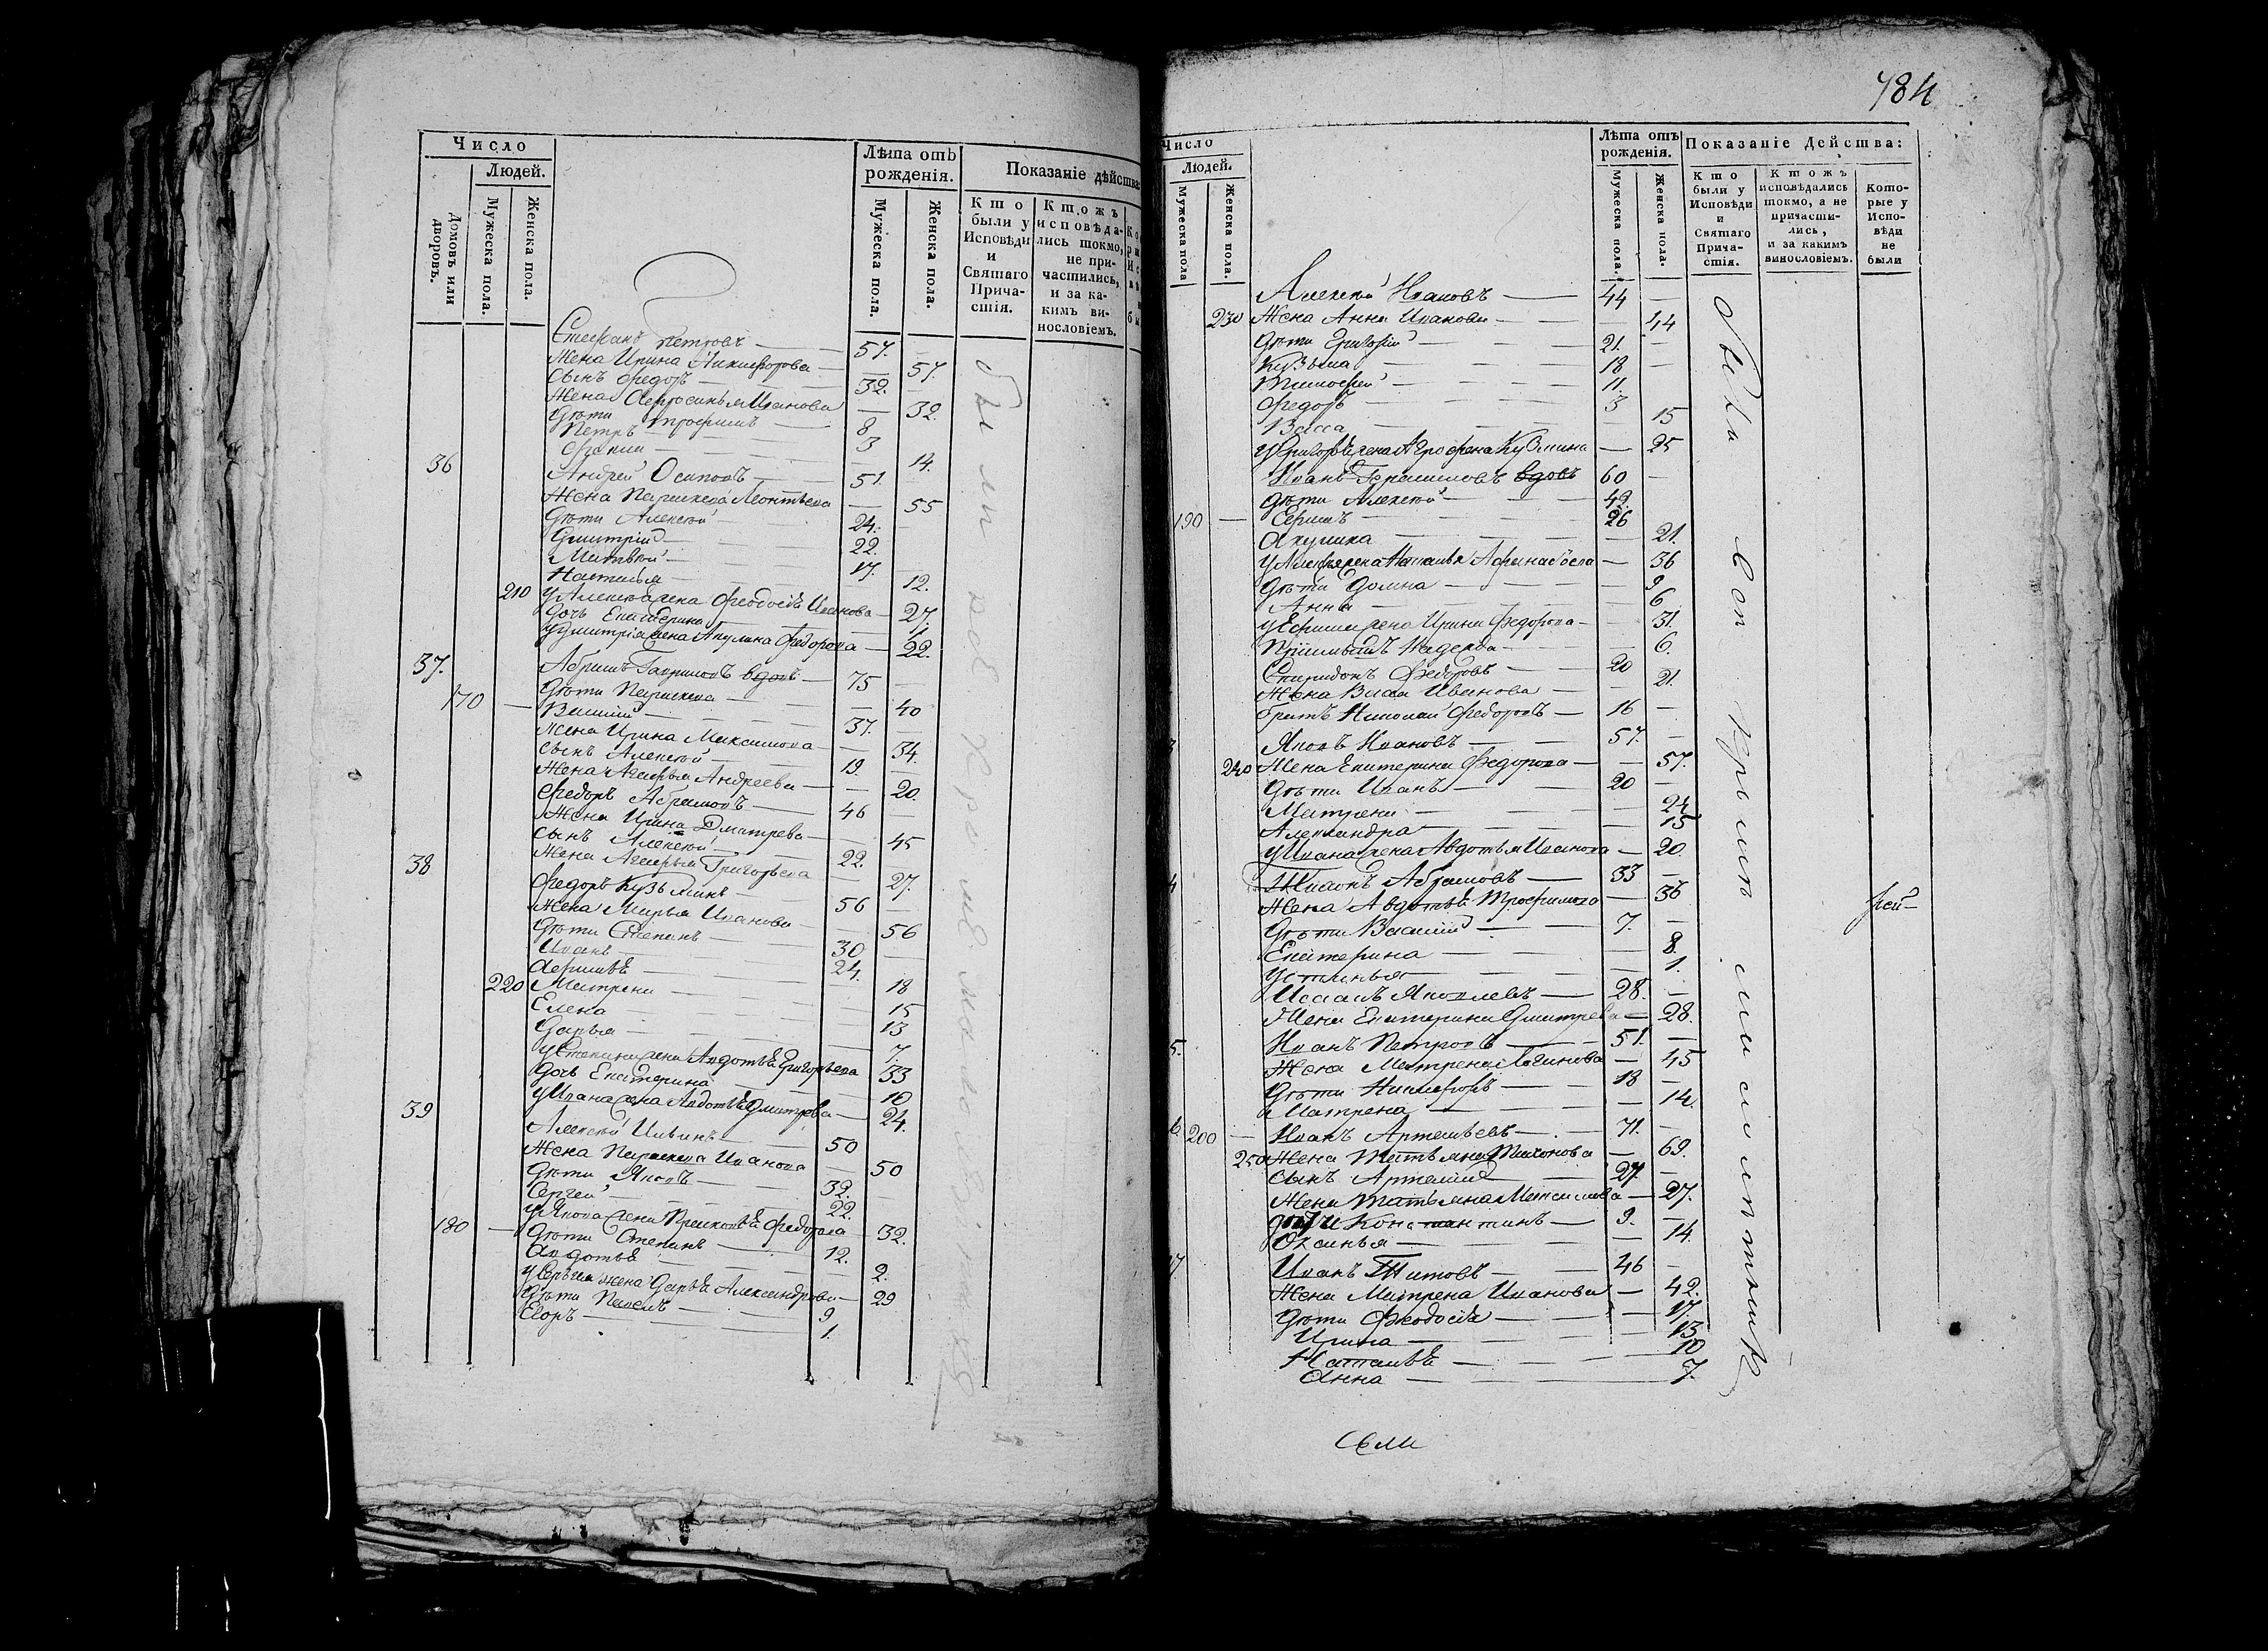 Число
Людей.
Домовъ или дворовъ.
Мужеска пола.
Женска пола.
Лѣта отъ рожденія.
Мужеска пола.
Женска пола.
Показаніе дѣйства
Кто были у Исповѣди и Святаго Причастія.
Ктожъ исповѣдались токмо, не причастились, и за какимъ винословіемъ.
Стефанъ Петровъ — 57. —
Жена Ирина Никифорова — — 57.
Сынъ Федоръ — 32. —
Жена Афросинья Иванова — 32.
Дѣти Трофимъ — 8
Петръ — 3
14.
36 Андрей Осиповъ — 51. —
Жена Парискева Леонтьева — 55
Дѣти Алексѣй — 24. —
Дмитрій — 22.
Матвѣй — 17.
Наталья — 12.
210 у Алексѣя жена Феодосія Иванова — 27.
Дочь Екатерина — 1
у Дмитрія жена Акулина Федорова — 22.
37. Абрамъ Гавриловъ вдовъ — 75 —
Дѣти Парискева — — 40
170 — Василій — 37. —
Жена Ирина Максимова — — 34.
Сынъ Алексѣй — 19. —
Жена Агафья Андреева — — 20.
Федоръ Абрамовъ — 46 —
Жена Ирина Дмитрева — 45
Сынъ Алексѣй — 22. —
Жена Агафья Григорьева — 27.
38 Федоръ Кузьминъ — 56 —
Жена Марья Иванова — — 56
Дѣти Степанъ — 30 —
Иванъ — 24.
18
220 Матрена — 15
Елена — 13
Дарья — 7.
у Степана жена Авдотья Григорьева 33
Дочь Екатерина — 10
у Ивана жена Авдотья Дмитрева — 24.
39 Алексѣй Ильинъ — 50
Жена Парискева Иванова — 50
Дѣти Яковъ — 32. —
Сергей — 22.
у Якова жена Прасковья Федорова 32.
180 — Дѣти Степанъ — 12.
Авдотья — 2.
у Сергѣя жена Дарья Александрова — 29
Дѣти Павелъ — 9
Егоръ — 1.
784
Число
Людей.
Мужеска пола
Женска пола.
Лѣта отъ рожденія.
Мужеска пола.
Женска пола.
Показаніе Действа:
Кто были у Исповѣди и Святаго Причастія.
Ктожъ исповѣдались токмо, а не причастились, и за какимъ винословіемъ.
Которые у Исповѣди не были
Алексѣй Ивановъ — 44 —
230 Жена Анна Иванова — — 44
Дѣти Григорій — 21. —
Кузьма — 18
Тимофей — 11.
Федоръ — 3
Васса — 15
у Григорья жена Агрофена Кузмина — 25
Иванъ Герасимовъ вдовъ 60 —
Дѣти Алексѣй — 42.
190 — Ефимъ — 26
Акулина — 21.
у Алексѣя жена Наталья Афанасьева — 36
Дѣти Домна — 9
Анна — 6
у Ефима жена Ирина Федорова — 31.
Надежда — 6.
Спиридонъ Федоровъ — 20
Жена Васса Иванова — — 21.
братъ Николай Федоровъ — 16 —
3 Яковъ Ивановъ — 57. —
240 Жена Екатерина Федорова — — 57.
Дѣти Иванъ — 20 —
Матрена — 24
Александра — 15
у Ивана жена Авдотья Иванова — 20.
4 Абрамовъ — 33 —
Жена Авдотья Трофимова — 36
Дѣти Василій — 7. —
Екатерина — 8.
Устинья — 1.
Яковлевъ — 28. —
Жена Екатерина Дмитрева — 28.
5. Иванъ Петровъ — 51. —
Жена Матрена Логинова — 45
Дѣти Никифоръ — 18 —
Матрена — — 14.
6. 200 — Иванъ Артемьевъ — 71. —
250 Жена Татьяна Тихонова — 69.
Сынъ Артемій — 27.
Жена Татьяна Максимова — 27.
Константинъ — 9. —
Оксинья — — 14.
7 Иванъ Титовъ — 46 —
Жена Матрена Иванова — 42.
Дѣти Феодосія — — 17.
Ирина — 13
Наталья — 10
Анна — 7.